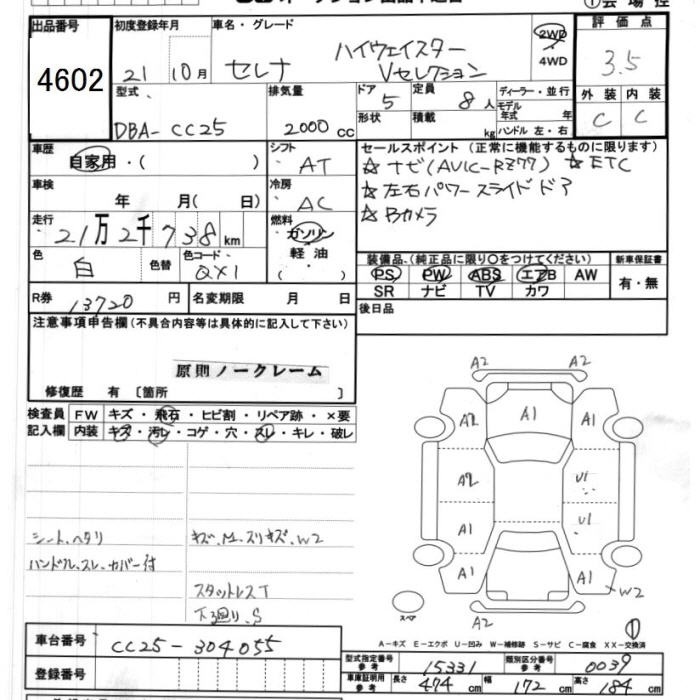 出品番号
4602
初度登録年月
21 10月
車名・グレード
セレナ
ハイウェイスター
Vセレクション
2WD
4WD
評価点
3.5
外装 内装
C C
型式
DBA-CC25
排気量
2000cc
ドア 5
形状
定員 8人
積載 kg
ディーラー・並行
モデル年式 年
ハンドル 左・右
車歴
自家用・( )
シフト
AT
セールスポイント(正常に機能するものに限ります)
☆ナビ(AVIC-RZ77) ☆ETC
☆左右パワースライドドア
☆Bカメラ
車検
年 月( 日)
冷房
AC
走行
21万2千738km
燃料
ガソリン
軽油
( )
色
白
色替
色コード
QX1
装備品(純正品に限り〇をつけてください)
PS PW ABS エアB AW
SR ナビ TV カワ
新車保証書
有・無
R券 13720円
名変期限 月 日
後日品
注意事項申告欄(不具合内容等は具体的に記入して下さい)
原則ノークレーム
修復歴 有 〔箇所 〕
検査員記入欄
FW キズ・飛石・ヒビ割・リペア跡・×要
内装 キズ・汚レ・コゲ・穴・スレ・キレ・破レ
シート、ヘタリ
ハンドル、スレ、カバー付
キズ、M、スリキズ、W2
スタットレスT
下廻り、S
A2 A2
A2 A1 A1
A2 U1
A1 U1
A1 A1
W2
A2
スペア
①
A-キズ E-エクボ U-凹み W-補修跡 S-サビ C-腐食 XX-交換済
車台番号
CC25-304055
登録番号
型式指定番号 参考 15331
類別区分番号 参考 0039
車庫証明用 参考 長さ 474cm 幅 172cm 高さ 184cm